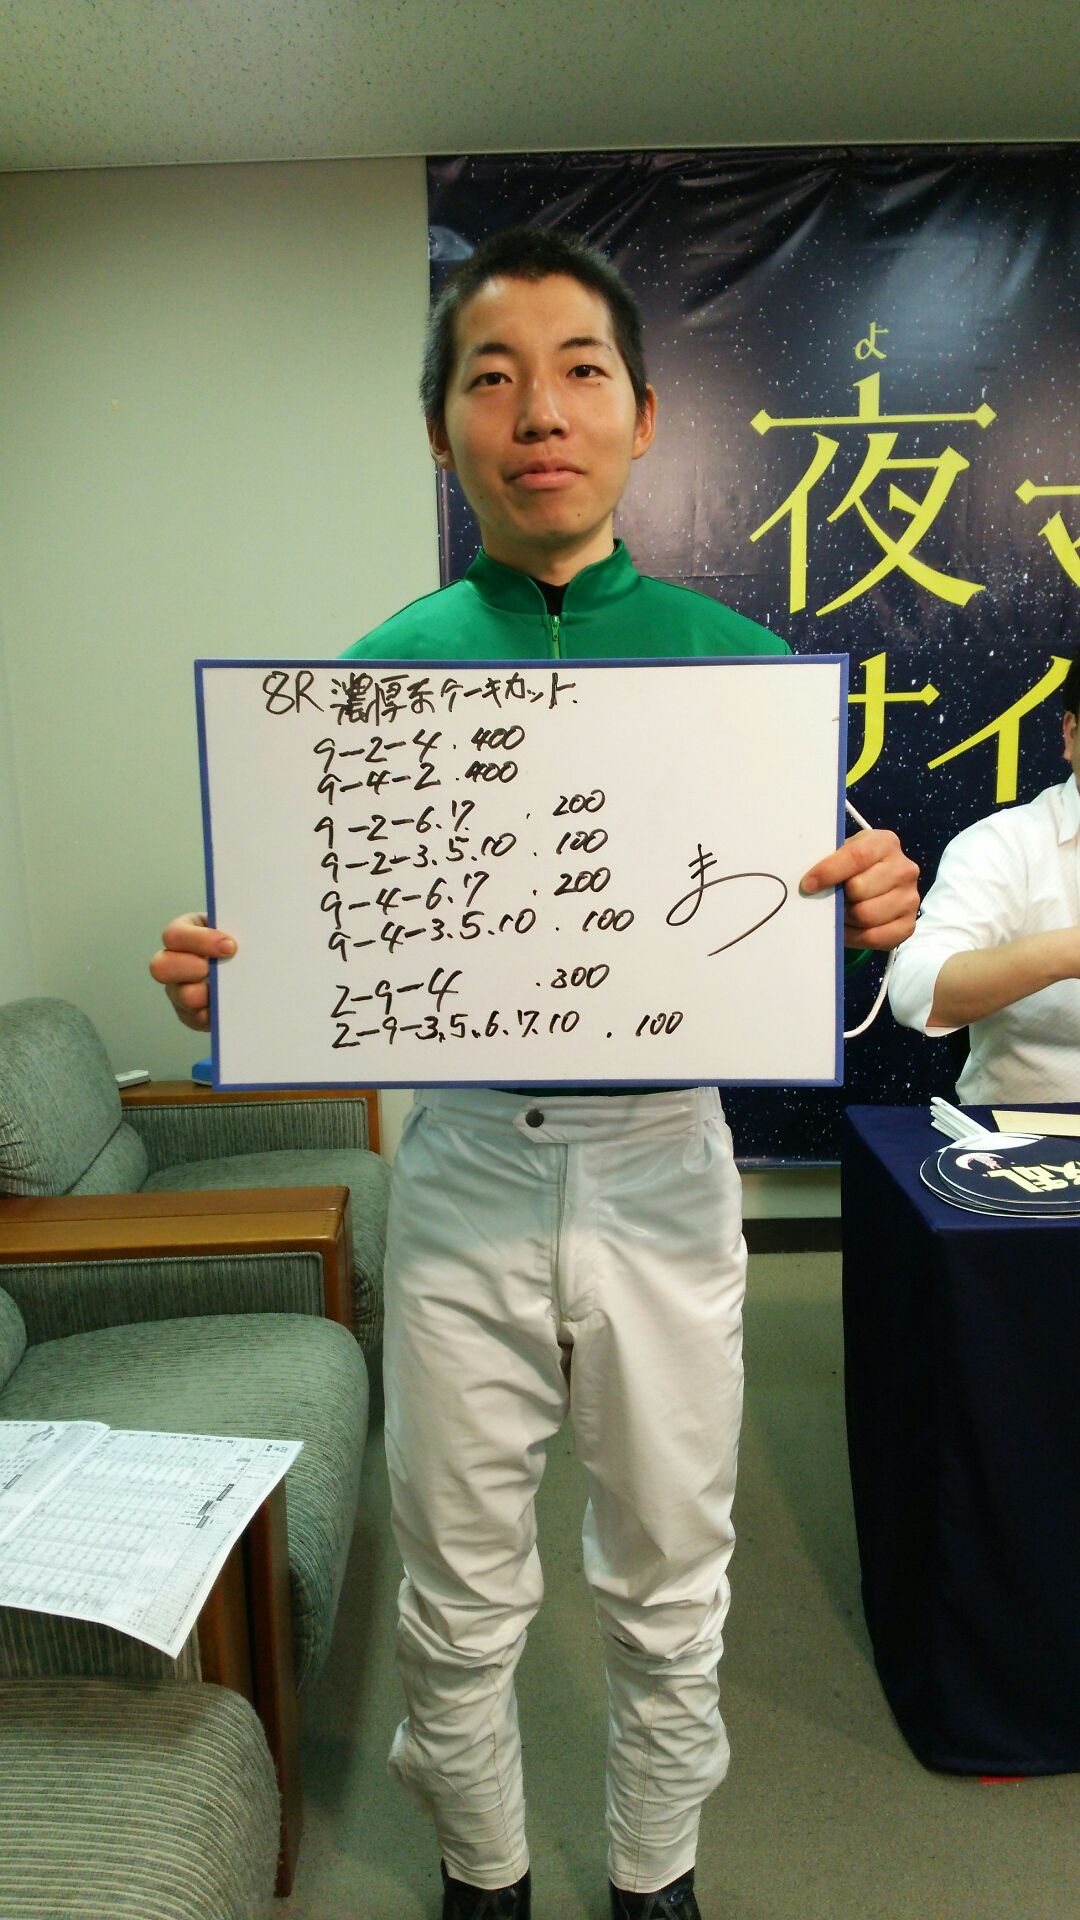 よ
夜
サイ
8R 濃厚系ケーキカット.
9-2-4.400
9-4-2.400
9-2-6.7 .200
9-2-3.5.10 .100
9-4-6.7 .200
9-4-3.5.10 .100
2-9-4 .300
2-9-3.5.6.7.10 .100